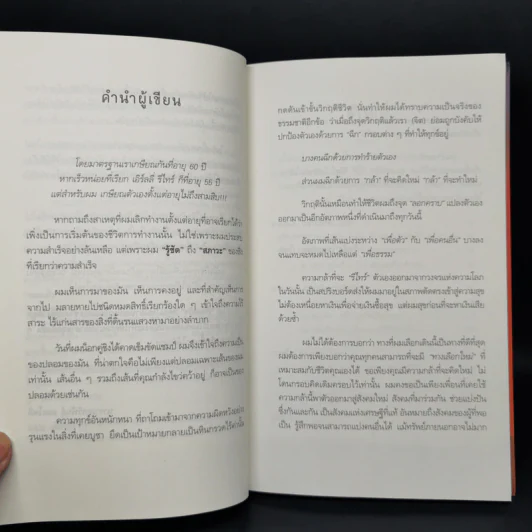 คำนำผู้เขียน
โดยมาตรฐานเราเกษียณกันที่อายุ 60 ปี
หากเร็วหน่อยที่เรียก เออร์ลี่ รีไทร์ ก็ที่อายุ 55 ปี
แต่สำหรับผม เกษียณตัวเองตั้งแต่อายุไม่ถึงสามสิบ!!
หากถามถึงสาเหตุที่ผมเลิกทำงานตั้งแต่อายุที่อาจเรียกได้ว่า
เพิ่งเป็นการเริ่มต้นของชีวิตการทำงานนั้น ไม่ใช่เพราะผมประสบ
ความสำเร็จอย่างล้นเหลือ แต่เพราะผม "รู้ชัด" ถึง "สภาวะ"
ที่เรียกว่าความสำเร็จ
ผมเห็นการมาของมัน เห็นการคงอยู่ และที่สำคัญเห็นการ
จากไป มลายหายไปชนิดหมดสิทธิ์เรียกร้องใด ๆ เข้าใจถึงความไร้
สาระ ไร้แก่นสารของสิ่งที่ดิ้นรนแสวงหามาอย่างลำบาก
วันที่ผมน็อกคู่ชิงได้คาดเข็มขัดแชมป์ ผมจึงเข้าใจถึงความเป็น
ของปลอมของมัน ที่น่าตกใจคือไม่เพียงแต่ปลอมเฉพาะเส้นของผม
เท่านั้น เส้นอื่น ๆ รวมถึงเส้นที่คุณกำลังไขว่คว้าอยู่ ก็อาจเป็นของ
ปลอมด้วยเช่นกัน
ความทุกข์อันหนักหนา ที่ถาโถมเข้ามาจากความผิดหวังอย่าง
รุนแรงในสิ่งที่เคยบูชา ยึดเป็นเป้าหมายกลายเป็นหินกรวดไร้ค่านั้น
กดดันเข้าขั้นวิกฤติชีวิต นั่นทำให้ผมได้ทราบความเป็นจริงของ
ธรรมชาติอีกข้อ ว่าเมื่อถึงจุดวิกฤติแล้วเรา (จิต) ย่อมถูกบังคับให้
ปกป้องตัวเองด้วยการ "ฉีก" กรอบต่าง ๆ ที่ทำให้ทุกข์อยู่
บางคนฉีกด้วยการทำร้ายตัวเอง
ส่วนผมฉีกด้วยการ "กล้า" ที่จะคิดใหม่ "กล้า" ที่จะทำใหม่
วิกฤตินั้นเหมือนทำให้ชีวิตผมถึงจุด "ลอกคราบ" แปลงตัวเอง
ออกมาเป็นอีกอัตภาพหนึ่งที่ดำเนินมาถึงทุกวันนี้
อัตภาพที่เส้นแบ่งระหว่าง "เพื่อตัว" กับ "เพื่อคนอื่น" บางลง
จนแทบจะหมดไปเหลือแต่ "เพื่อธรรม"
ความกล้าที่จะ "รีไทร์" ตัวเองออกมาจากวงจรแห่งความโลภ
ในวันนั้น เป็นสปริงบอร์ดส่งให้ผมมาอยู่ในสภาพคิดตรงเข้าสู่ความสุข
ไม่ต้องเหนื่อยหาเงินเพื่อจ่ายซื้อสุข แต่ผมสุขก่อนที่จะหาเงินเสีย
ด้วยซ้ำ
ผมไม่ได้ต้องการบอกว่า ทางที่ผมเลือกเดินนี้เป็นทางที่ดีที่สุด
ผมต้องการเพียงบอกว่าคุณทุกคนสามารถที่จะมี "ทางเลือกใหม่" ที่
เหมาะสมกับชีวิตคุณเองได้ ขอเพียงคุณมีความกล้าที่จะคิดใหม่ ไม่
โดนกรอบคิดเดิมครอบไว้เท่านั้น ผมคงขอเป็นเพียงเพื่อนที่เคยใช้
ความกล้านี้พาตัวออกมาสู่สังคมใหม่ สังคมที่มาร่วมกัน ช่วยแบ่งปัน
ซึ่งกันและกัน เป็นสังคมแห่งเศรษฐีที่แท้ อันหมายถึงสังคมของผู้ที่พอ
เป็น รู้สึกพอจนสามารถแบ่งคนอื่นได้ แม้ทรัพย์ภายนอกอาจไม่มาก